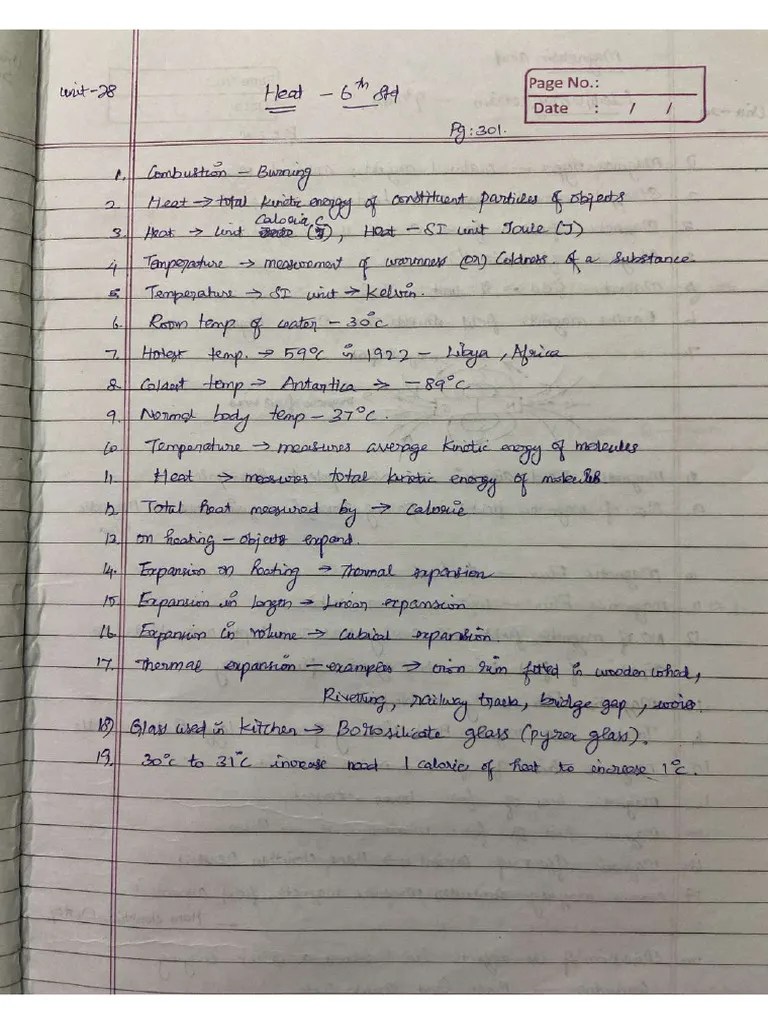 Unit-28
Heat - 6th Std
Page No.:
Date : / /
Pg:301.
1. Combustion - Burning
2. Heat → total kinetic energy of constituent particles of objects
3. Heat → unit Calorie, C, Heat - SI unit Joule (J)
4. Temperature → measurement of warmness (or) Coldness of a substance.
5. Temperature → SI unit → Kelvin.
6. Room temp of water - 30°C
7. Hotest temp. → 59°C in 1922 - Libya, Africa
8. Coldest temp → Antartica → -89°C.
9. Normal body temp - 37°C.
10. Temperature → measures average kinetic energy of molecules
11. Heat → measures total kinetic energy of molecules
12. Total heat measured by → calorie
13. on heating - objects expand.
14. Expansion on heating → Thermal expansion
15. Expansion in length → Linear expansion
16. Expansion in volume → cubical expansion.
17. Thermal expansion - examples → iron rim fitted in wooden wheel,
Rivetting, railway track, bridge gap, wires.
18) Glass used in kitchen → Borosilicate glass (pyrex glass).
19. 30°C to 31°C increase need 1 calorie of heat to increase 1°C.